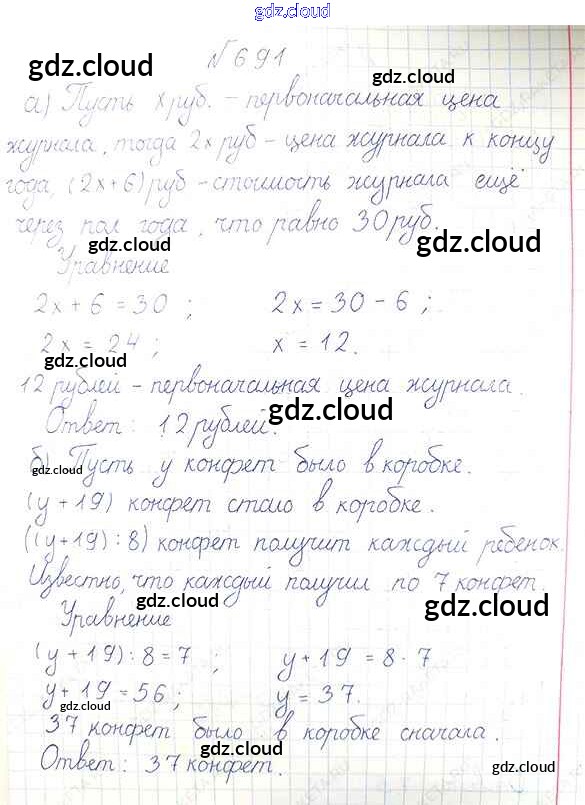 gdz.cloud
№ 691
gdz.cloud
а) Пусть x руб. – первоначальная цена
gdz.cloud
журнала, тогда 2x руб – цена журнала к концу
года, (2x+6) руб – стоимость журнала ещё
через пол года, что равно 30 руб.
gdz.cloud gdz.cloud
Уравнение
2x + 6 = 30 ; 2x = 30 - 6 ;
2x = 24 ; x = 12.
gdz.cloud
12 рублей – первоначальная цена журнала.
Ответ: 12 рублей.
gdz.cloud
б) Пусть y конфет было в коробке.
gdz.cloud
(y + 19) конфет стало в коробке.
((y+19) : 8) конфет получит каждый ребенок.
Известно, что каждый получил по 7 конфет.
gdz.cloud gdz.cloud
Уравнение
(y + 19) : 8 = 7 ; y + 19 = 8 · 7
y + 19 = 56 ; y = 37.
gdz.cloud
37 конфет было в коробке сначала.
gdz.cloud
Ответ: 37 конфет.
gdz.cloud